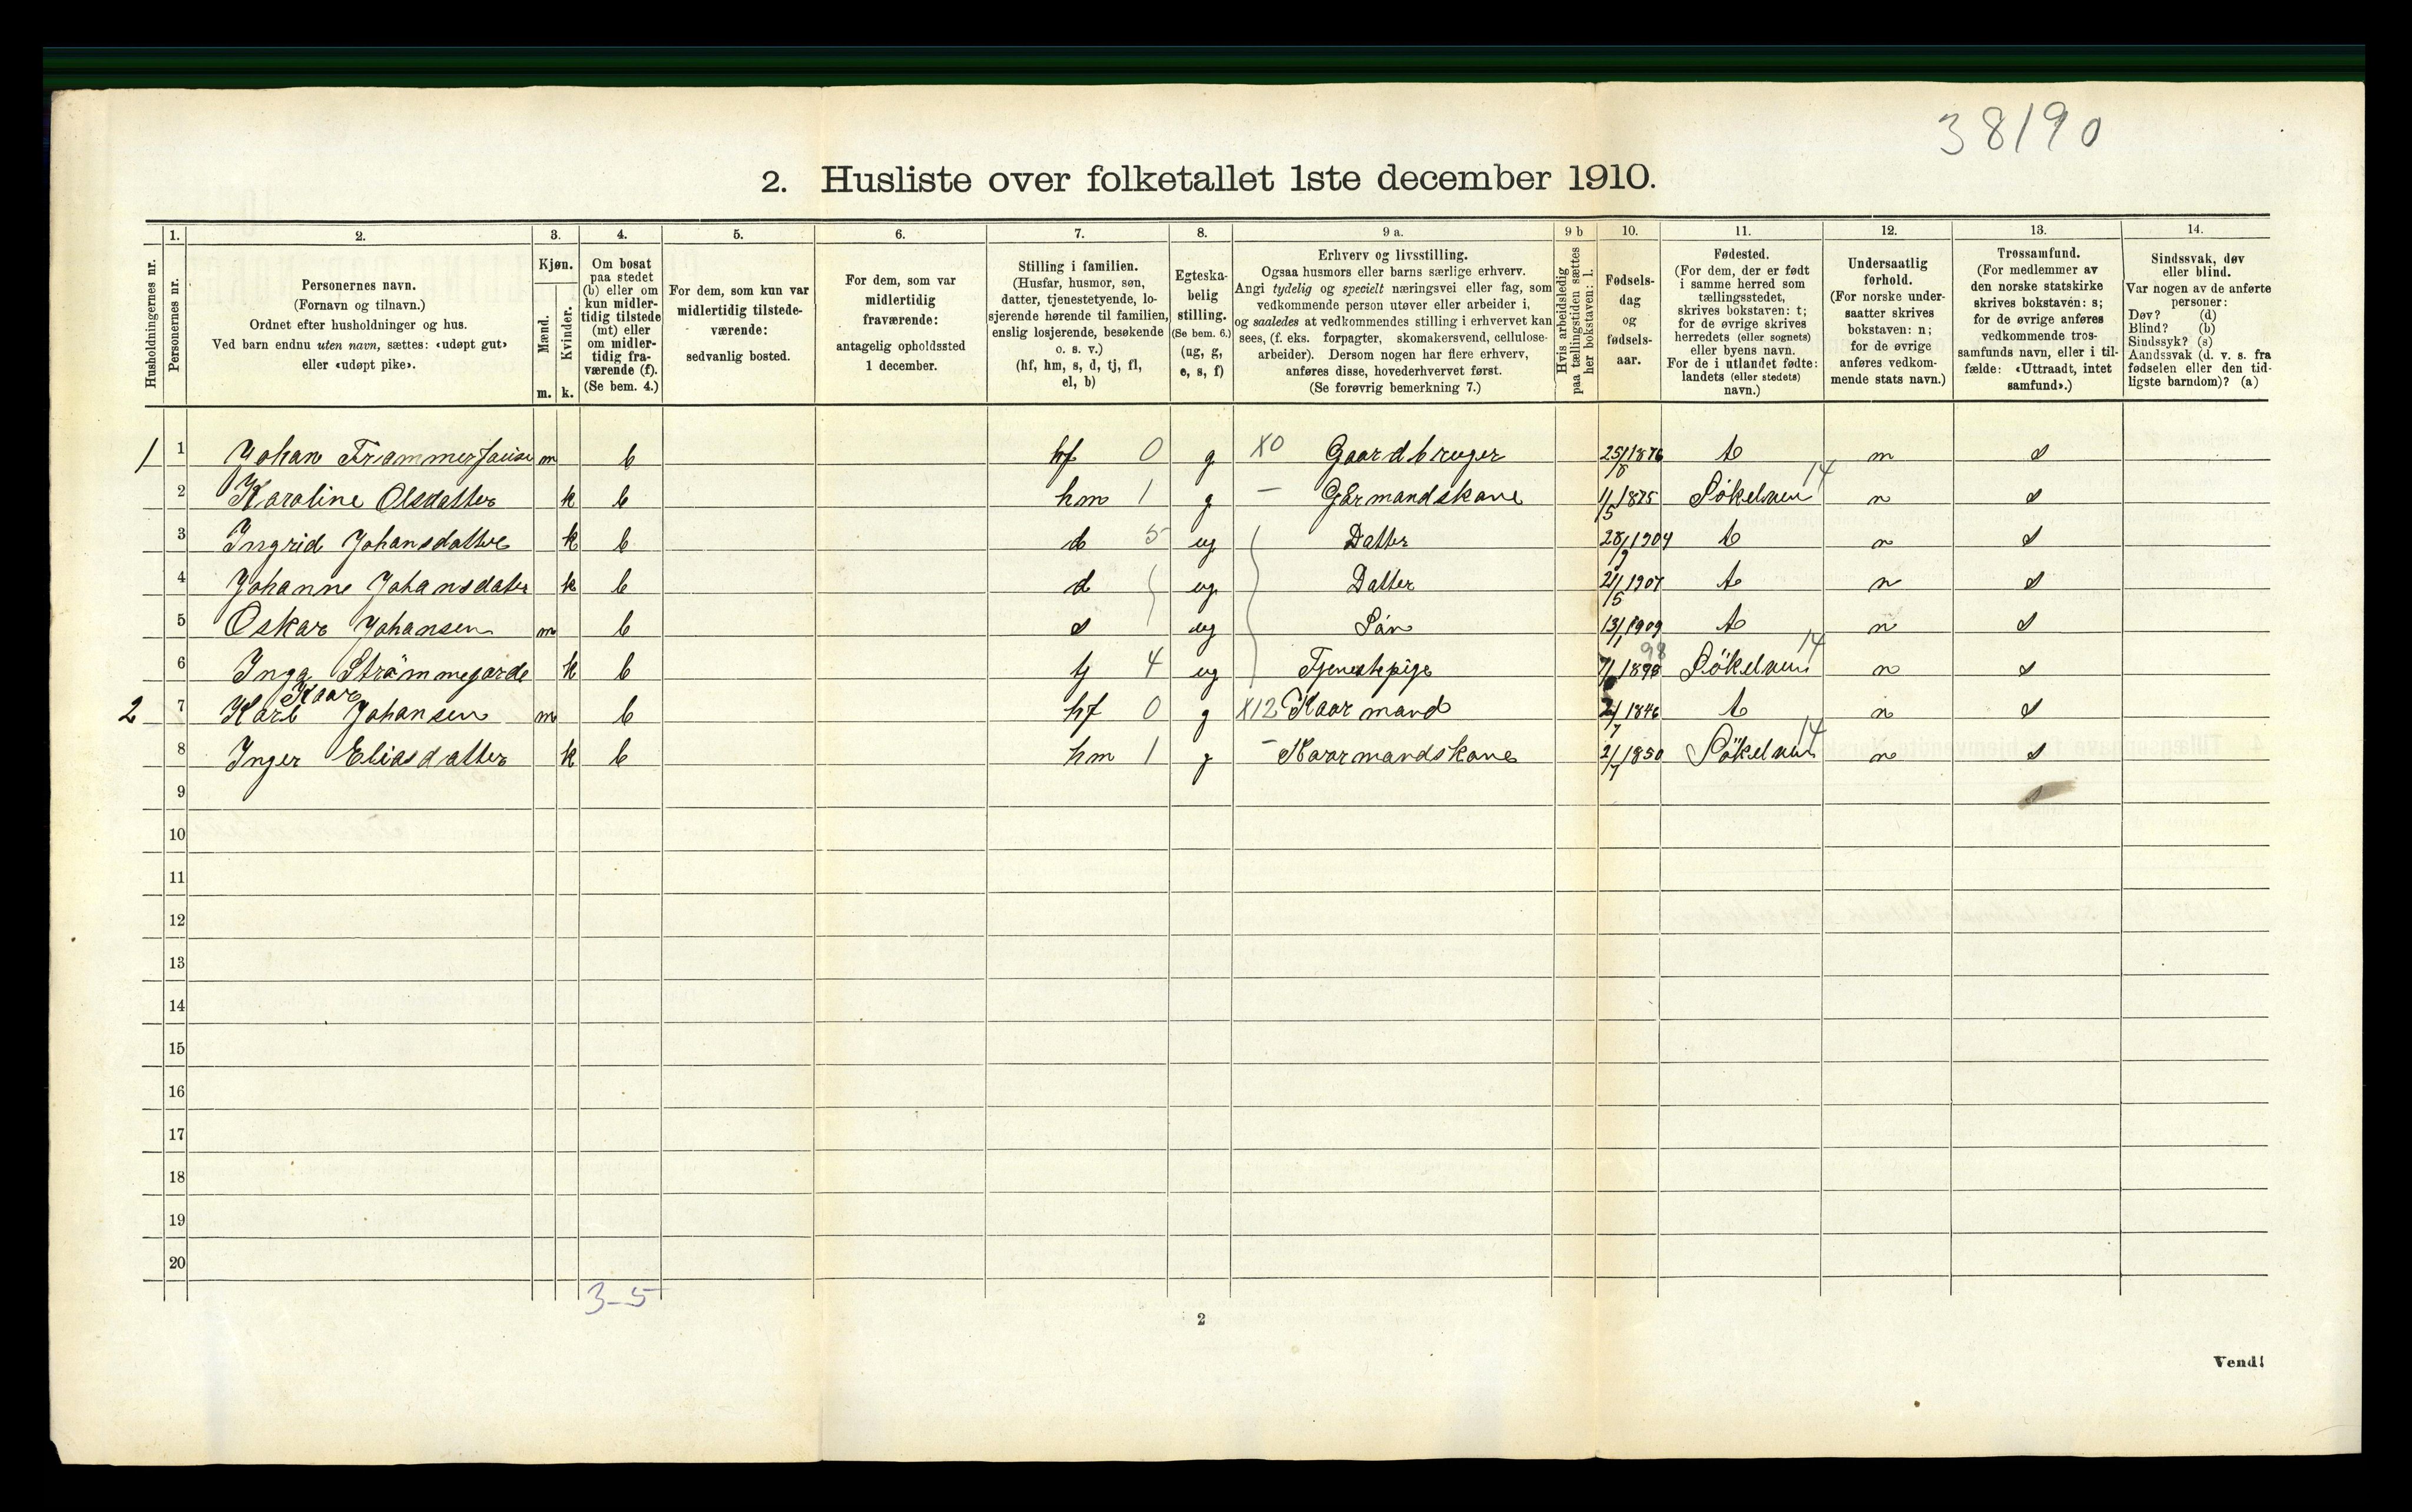 38190
2. Husliste over folketallet 1ste december 1910.
Husholdningernes nr.
1. Personernes nr.
2. Personernes navn.
(Fornavn og tilnavn.)
Ordnet efter husholdninger og hus.
Ved barn endnu uten navn, sættes: «udøpt gut»
eller «udøpt pike».
3. Kjøn.
Mænd. m.
Kvinder. k.
4. Om bosat
paa stedet
(b) eller om
kun midler-
tidig tilstede
(mt) eller
om midler-
tidig fra-
værende (f).
(Se bem. 4.)
5. For dem, som kun var
midlertidig tilstede-
værende:
sedvanlig bosted.
6. For dem, som var
midlertidig
fraværende:
antagelig opholdssted
1 december.
7. Stilling i familien.
(Husfar, husmor, søn,
datter, tjenestetyende, lo-
sjerende hørende til familien,
enslig losjerende, besøkende
o. s. v.)
(hf, hm, s, d, tj, fl,
el, b)
8. Egteska-
belig
stilling.
(Se bem. 6.)
(ug, g,
e, s, f)
9 a. Erhverv og livsstilling.
Ogsaa husmors eller barns særlige erhverv.
Angi tydelig og specielt næringsvei eller fag, som
vedkommende person utøver eller arbeider i,
og saaledes at vedkommendes stilling i erhvervet kan
sees, (f. eks. forpagter, skomakersvend, cellulose-
arbeider). Dersom nogen har flere erhverv,
anføres disse, hovederhvervet først.
(Se forøvrig bemerkning 7.)
9 b Hvis arbeidsledig
paa tællingstiden sættes
her bokstaven: l.
10. Fødsels-
dag
og
fødsels-
aar.
11. Fødested.
(For dem, der er født
i samme herred som
tællingsstedet,
skrives bokstaven: t;
for de øvrige skrives
herredets (eller sognets)
eller byens navn.
For de i utlandet fødte:
landets (eller stedets)
navn.)
12. Undersaatlig
forhold.
(For norske under-
saatter skrives
bokstaven: n;
for de øvrige
anføres vedkom-
mende stats navn.)
13. Trossamfund.
(For medlemmer av
den norske statskirke
skrives bokstaven: s;
for de øvrige anføres
vedkommende tros-
samfunds navn, eller i til-
fælde: «Uttraadt, intet
samfund».)
14. Sindssvak, døv
eller blind.
Var nogen av de anførte
personer:
Døv? (d)
Blind? (b)
Sindssyk? (s)
Aandssvak (d. v. s. fra
fødselen eller den tid-
ligste barndom)? (a)
1 1 Johan m b hf 0 g X0 Gaardbruger 25/8 1876 t n s
2 Karoline Olsdatter k b hm 1 g – Gårmandskone 1/5 1875 Søkelven 14 n s
3 Ingrid Johansdatter k b d 5 ug Datter 28/9 1904 t n s
4 Johanne Johansdatter k b d ug Datter 21/5 1907 t n s
5 Oskar Johansen m b s ug Sön 13/1 1909 t n s
6 Inga Strömmegjerde k b tj 4 ug Tjenestepige 98 Sökelven 14 n s
2 7 Karl Kaare Johansen m b hf 0 g X12 Kaarmand 2/7 1846 t n s
8 Inger Eliasdatter k b hm 1 g – Kaarmandskone 2/7 1850 Sökelven 14 n s
9 s
10
11
12
13
14
15
16
17
18
19
20
3-5
2
Vend!